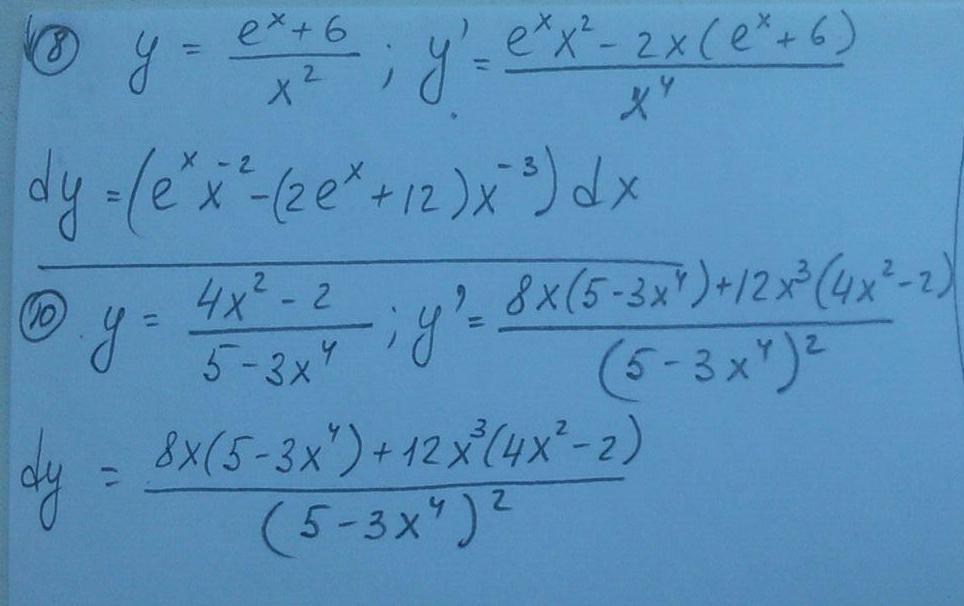 ⑧ y = (eˣ + 6)/x² ; y' = (eˣx² - 2x(eˣ + 6))/x⁴
dy = (eˣx⁻² - (2eˣ + 12)x⁻³) dx
⑩ y = (4x² - 2)/(5 - 3x⁴) ; y' = (8x(5 - 3x⁴) + 12x³(4x² - 2))/(5 - 3x⁴)²
dy = (8x(5 - 3x⁴) + 12x³(4x² - 2))/(5 - 3x⁴)²